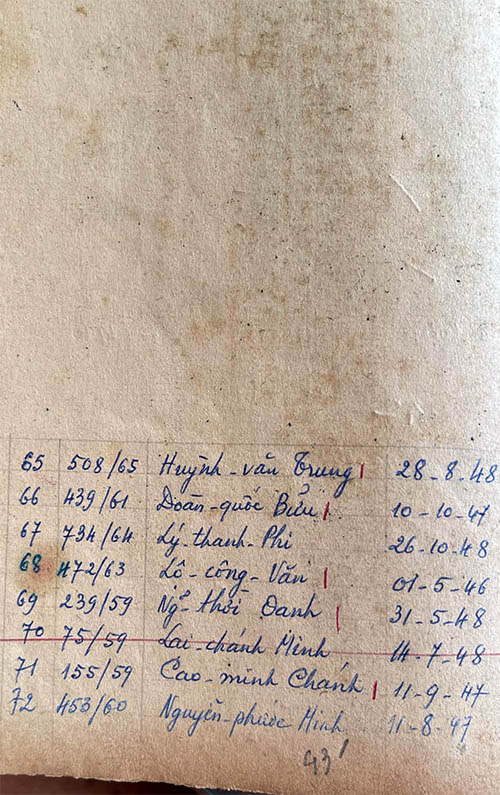 65 508/65 Huỳnh-văn Trung 28-8-48
66 439/61 Doãn-quốc Bửu 10-10-47
67 734/64 Lý-thanh-Phi 26-10-48
68 472/63 Lô-công-Văn 01-5-46
69 239/59 Ng~thới Oanh 31-5-48
70 75/59 Lai-chánh Minh 14-7-48
71 155/59 Cao-minh Chánh 11-9-47
72 453/60 Nguyễn-phước Minh 11-8-47
43